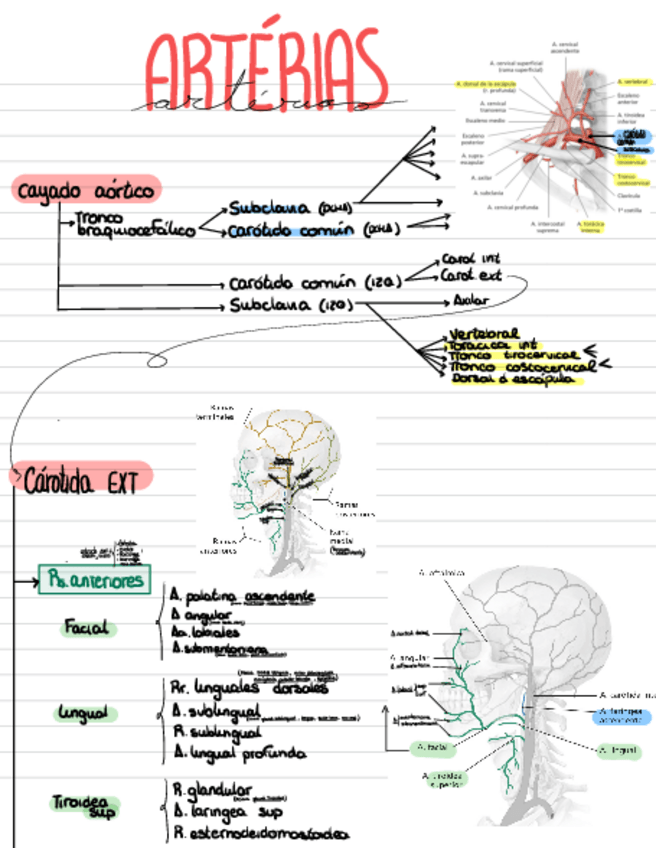 ARTÉRIAS
artérias
A. cervical
ascendente
A. cervical superficial
(rama superficial)
A. dorsal de la escápula
(r. profunda)
A. cervical
transversa
Escaleno medio
Escaleno
posterior
A. supra-
escapular
A. axilar
A. subclavia
A. cervical profunda
A. intercostal
suprema
A. torácica
interna
A. vertebral
Escaleno
anterior
A. tiroidea
inferior
Tronco
tirocervical
Tronco
costocervical
Clavícula
1ª costilla
Cayado aórtico
Tronco
braquiocefálico
Subclavia (DCHA)
Carótida común (DCHA)
Carótida común (IZQ)
Carot int
Carot ext
Subclavia (IZQ)
Axilar
Vertebral
Torácica int
Tronco tirocervical
Tronco costocervical
Dorsal d escápula
Carótida EXT
Ramas
terminales
Ramas
anteriores
Ramas
Rama
medial
Rs. anteriores
Facial
A. palatina ascendente
A angular
Aa. labiales
A. submentoniana
Lingual
Rr. linguales dorsales
A. sublingual
R. sublingual
A. lingual profunda
Tiroidea
sup
R. glandular
A. laringea sup
R. esternocleidomastoidea
A. oftálmica
A. angular
A. facial
A. tiroidea
superior
A. lingual